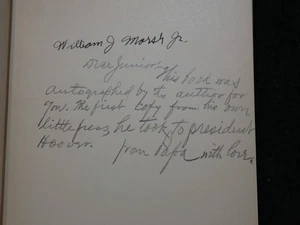 William J Marsh Jr.
Dear Junior
This book was
autographed by the author for
you. The first copy from his own
little press he took to president
Hoover. from Papa with love.